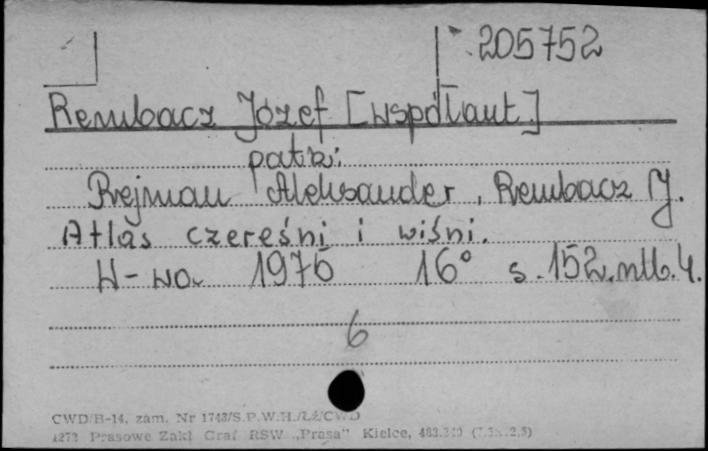 205752
Rembacz Józef [współaut.]
patrz:
Rejman Aleksander, Rembacz J.
Atlas czereśni i wiśni.
W-wa 1976 16° s. 152, nlb. 4.
6
CWD/B-14, zam. Nr 1743/S.P.W.H./
1273 Prasowe Zakł Graf RSW „Prasa" Kielce,